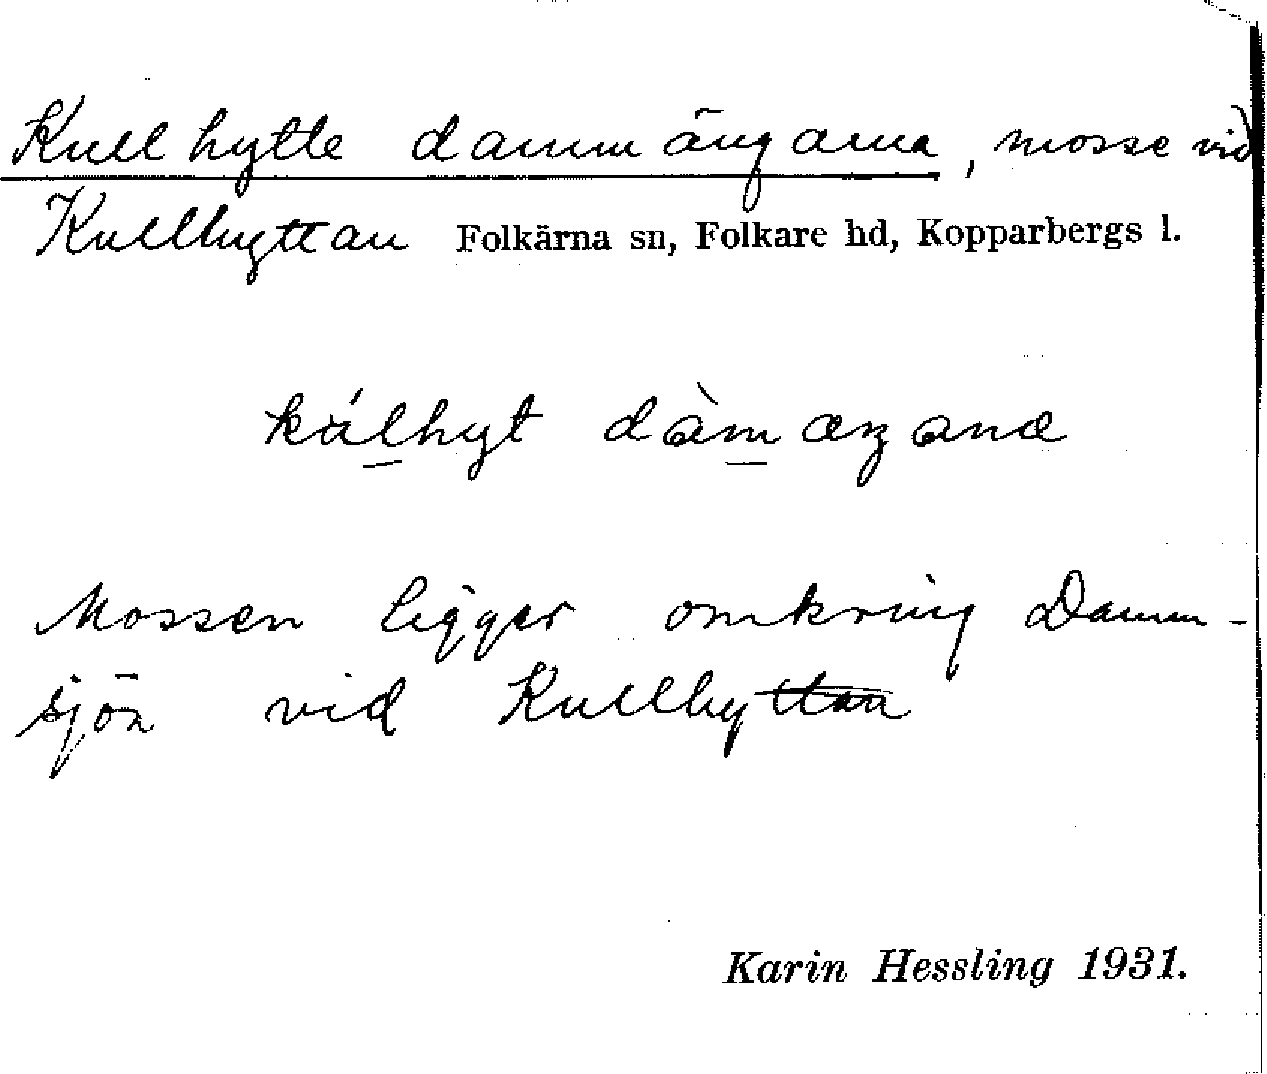 Kullhytte dammängarna, mosse vid
Kullhyttan Folkärna sn, Folkare hd, Kopparbergs l.
kúlhyt dàm æŋ ana
Mossen ligger omkring Damm-
sjön vid Kullhyttan
Karin Hessling 1931.